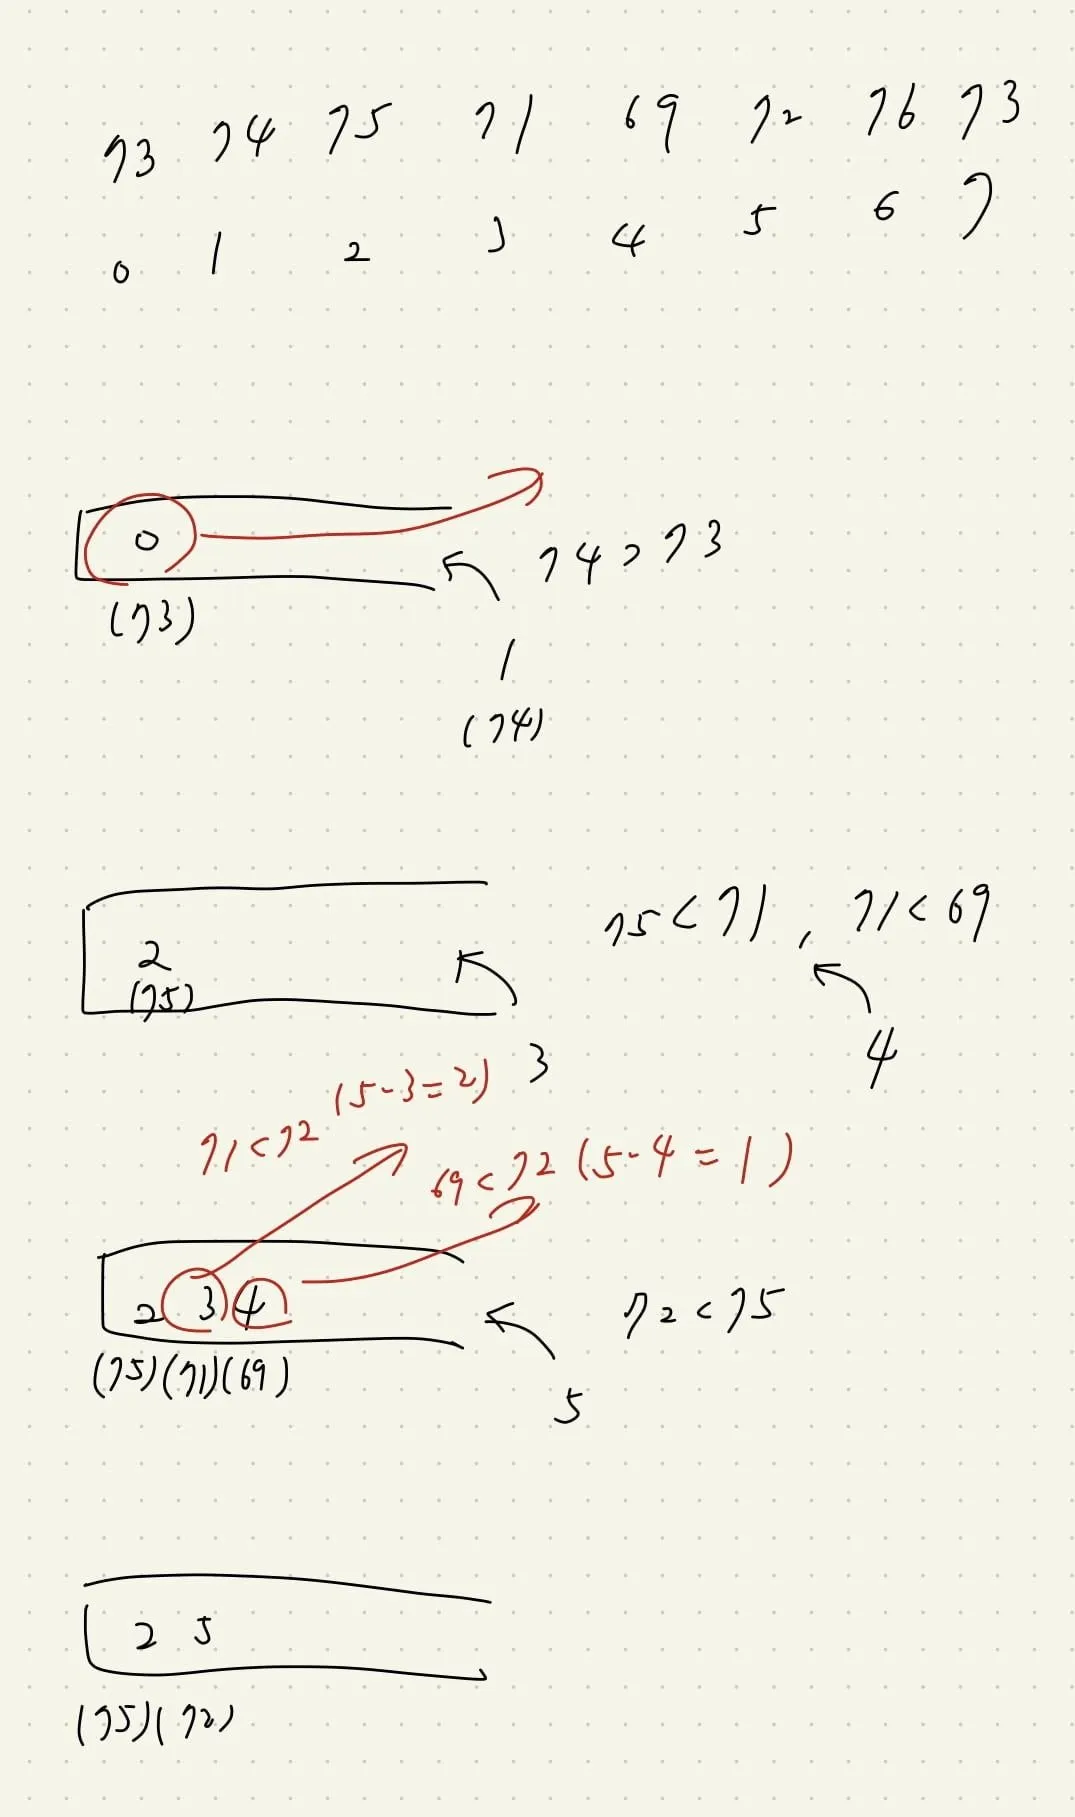 73 74 75 71 69 72 76 73
0 1 2 3 4 5 6 7
0
(73)
74 > 73
1
(74)
2
(75)
75 < 71 , 71 < 69
3
4
71 < 72 (5-3=2)
69 < 72 (5-4=1)
2 3 4
(75)(71)(69)
72 < 75
5
2 5
(75)(72)